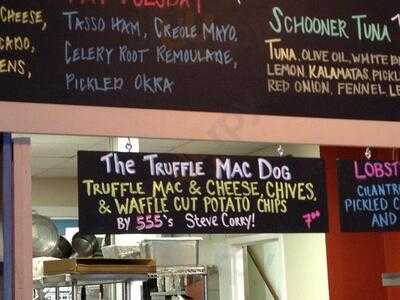 CHEESE,
TUESDAY
TASSO HAM, CREOLE MAYO,
CELERY ROOT REMOULADE,
PICKLED OKRA
SCHOONER TUNA
TUNA, OLIVE OIL, WHITE
LEMON KALAMATAS,
RED ONION, FENNEL
THE TRUFFLE MAC DOG
TRUFFLE MAC & CHEESE, CHIVES,
& WAFFLE CUT POTATO CHIPS
BY 555's STEVE CORRY! 7.00
LOBST
CILANTR
PICKLED C
AND